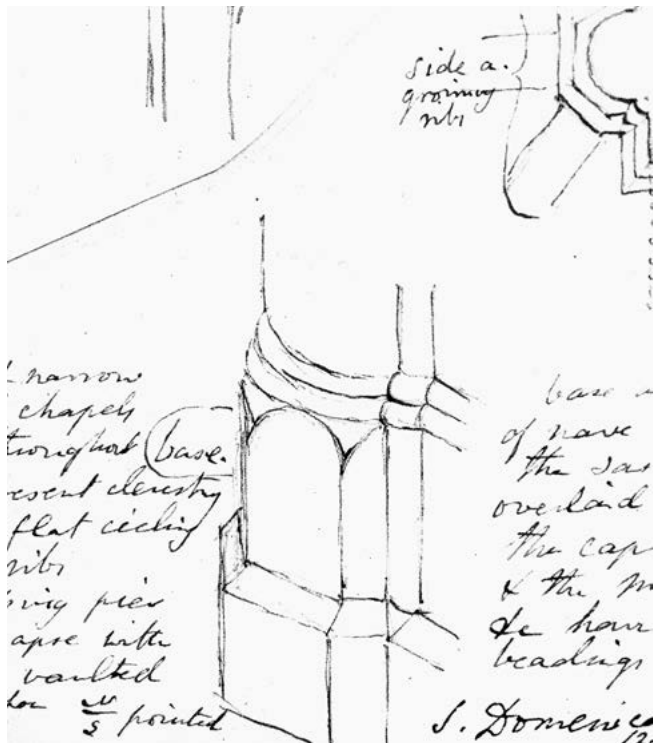 side a.
groining
ribs
narrow
chapels
throughout
base.
present clerestry
flat ceiling
ribs
pier
apse with
vaulted
N
S pointed
base
of nave
the
overlaid
the cap
& the
&c have
beadings
S. Domenico